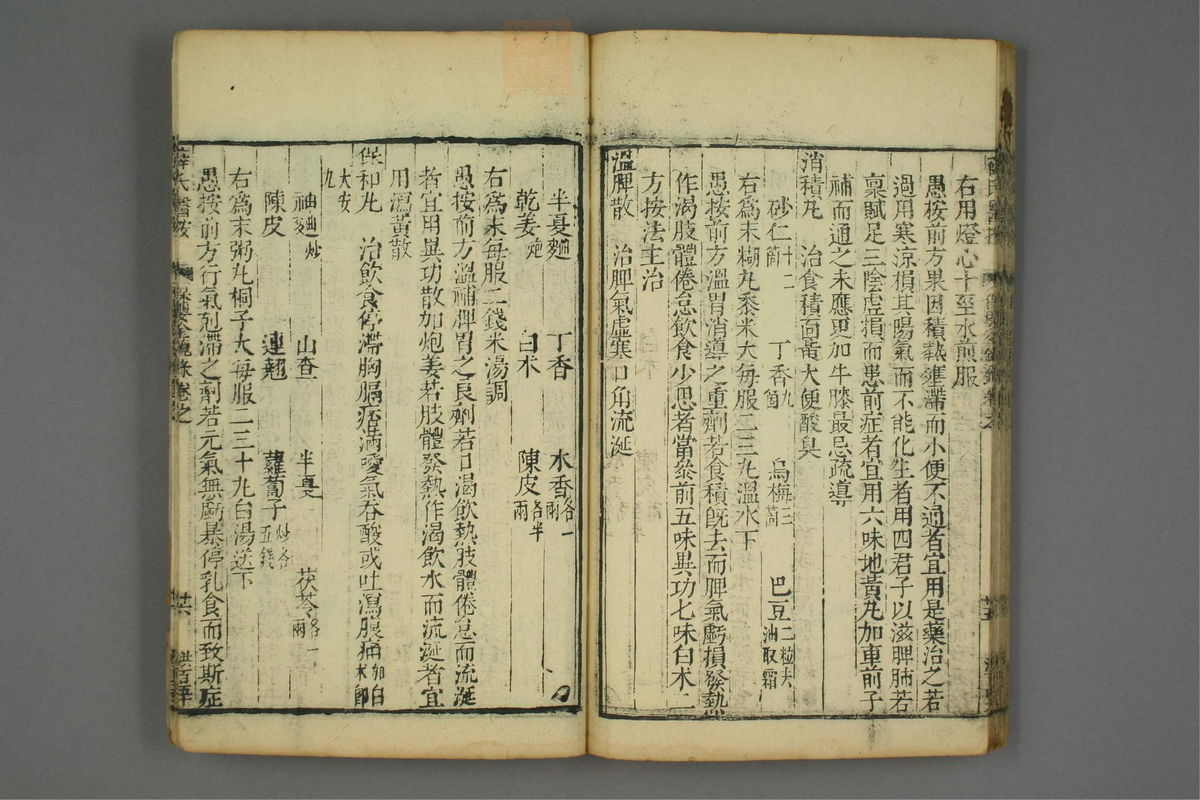 右用燈心十莖水煎服
愚按前方果因積熱壅滯而小便不通者宜用是藥治之若
過用寒涼損其陽氣而不能化生者用四君子以滋脾肺若
稟賦足三陰虛損而患前症者宜用六味地黃丸加車前子
補而通之未應更加牛膝最忌疏導
消積丸　治食積面黃大便酸臭
砂仁十二箇　丁香九箇　烏梅三箇　巴豆二粒去油取霜
右為末糊丸黍米大每服二三丸溫水下
愚按前方溫胃消導之重劑若食積旣去而脾氣虧損發熱
作渴肢體倦怠飲食少思者當叅前五味異功七味白朮二
方按法主治
溫脾散　治脾氣虛寒口角流涎
半夏麯　丁香　木香各一兩
乾姜炮　白朮　陳皮各半兩
右為末每服二錢米湯調
愚按前方溫補脾胃之良劑若口渴飲熱肢體倦怠而流涎
者宜用異功散加炮姜若肢體發熱作渴飲水而流涎者宜
用瀉黃散
保和丸　治飲食停滯胸膈痞滿噯氣吞酸或吐瀉腹痛加白朮即
大安丸
神麯炒　山查　半夏　茯苓各一兩
陳皮　連翹　蘿蔔子炒各五錢
右為末粥丸桐子大每服二三十丸白湯送下
愚按前方行氣剋滯之劑若元氣無虧暴停乳食而致斯症
薛氏醫按
卷之